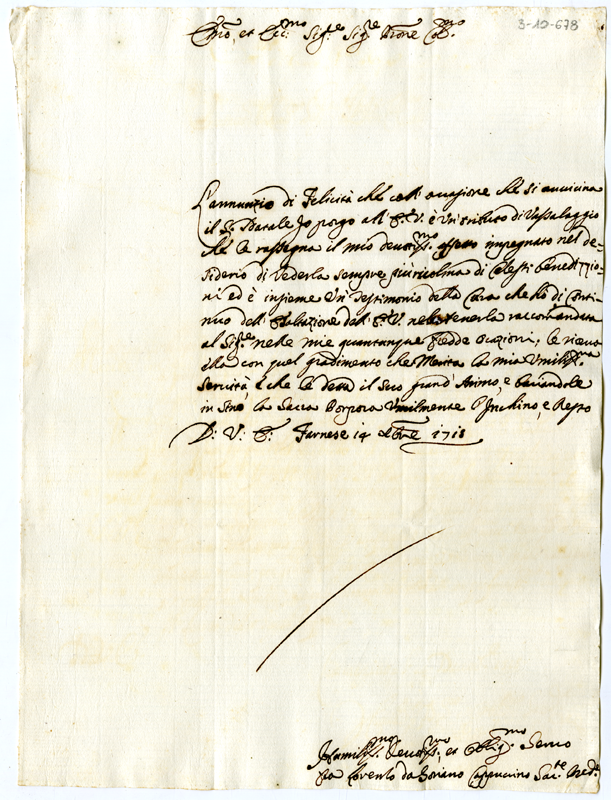 3-12-678
Emo, et Ecc:mo Sig.re Sig.re Prone Col.mo
L'annunzio di Felicità che coll'occasione che si avvicina
il S. Natale Io porgo all'E. V. è Un tributo di Vassalaggio
che le rassegna il mio devotiss.mo affetto impegnato nel de-
siderio di vederla sempre più ricolma di Celesti benedizzio-
ni ed è insieme Un Testimonio della Cura che hò di Conti-
nuo dell'Esaltazione dell'E. V. nel tenerla raccomandata
al Sig.re nelle mie quantunque fredde orazioni; le riceva
ella con quel gradimento che Merita la mia Umiliss.ma
Servitù, e che le detta il Suo grand'Animo, e baciandole
in fine la Sacra Porpora Umilmente l'Inchino, e Resto
D: V: E: Farnese 14 Xbre 1718
Humiliss.mo Devotiss.mo et Obblig.mo Servo
Fra Lorenzo da Soriano Cappuccino Sac.te